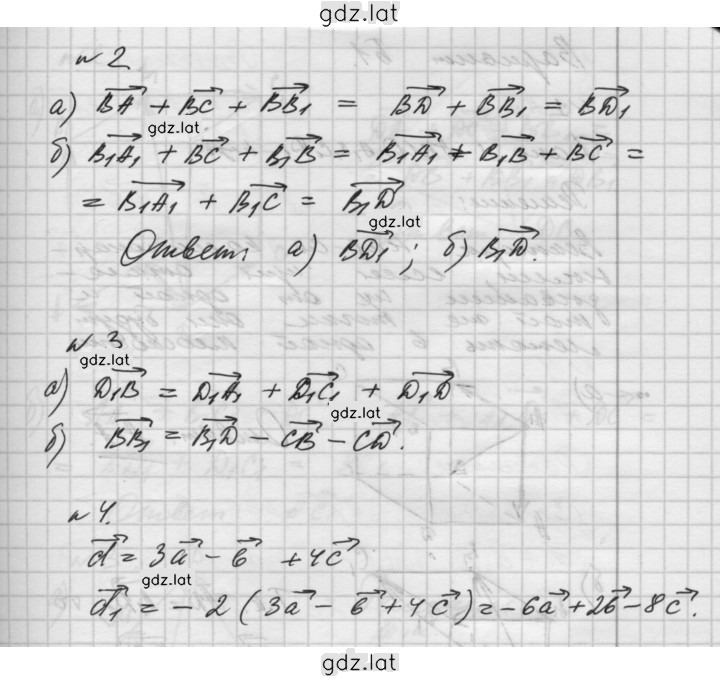 gdz.lat
№2
а) BA⃗ + BC⃗ + BB₁⃗ = BD⃗ + BB₁⃗ = BD₁⃗
gdz.lat
б) B₁A₁⃗ + BC⃗ + B₁B⃗ = B₁A₁⃗ + B₁B⃗ + BC⃗ =
= B₁A₁⃗ + B₁C⃗ = B₁D⃗
gdz.lat
Ответ: а) BD₁⃗ ; б) B₁D⃗.
№3
gdz.lat
а) D₁B⃗ = D₁A₁⃗ + D₁C₁⃗ + D₁D⃗
gdz.lat
б) BB₁⃗ = B₁D⃗ − CB⃗ − CD⃗.
№4.
d⃗ = 3a⃗ − b⃗ + 4c⃗
gdz.lat
d₁⃗ = −2 (3a⃗ − b⃗ + 4c⃗) = −6a⃗ + 2b⃗ − 8c⃗.
gdz.lat